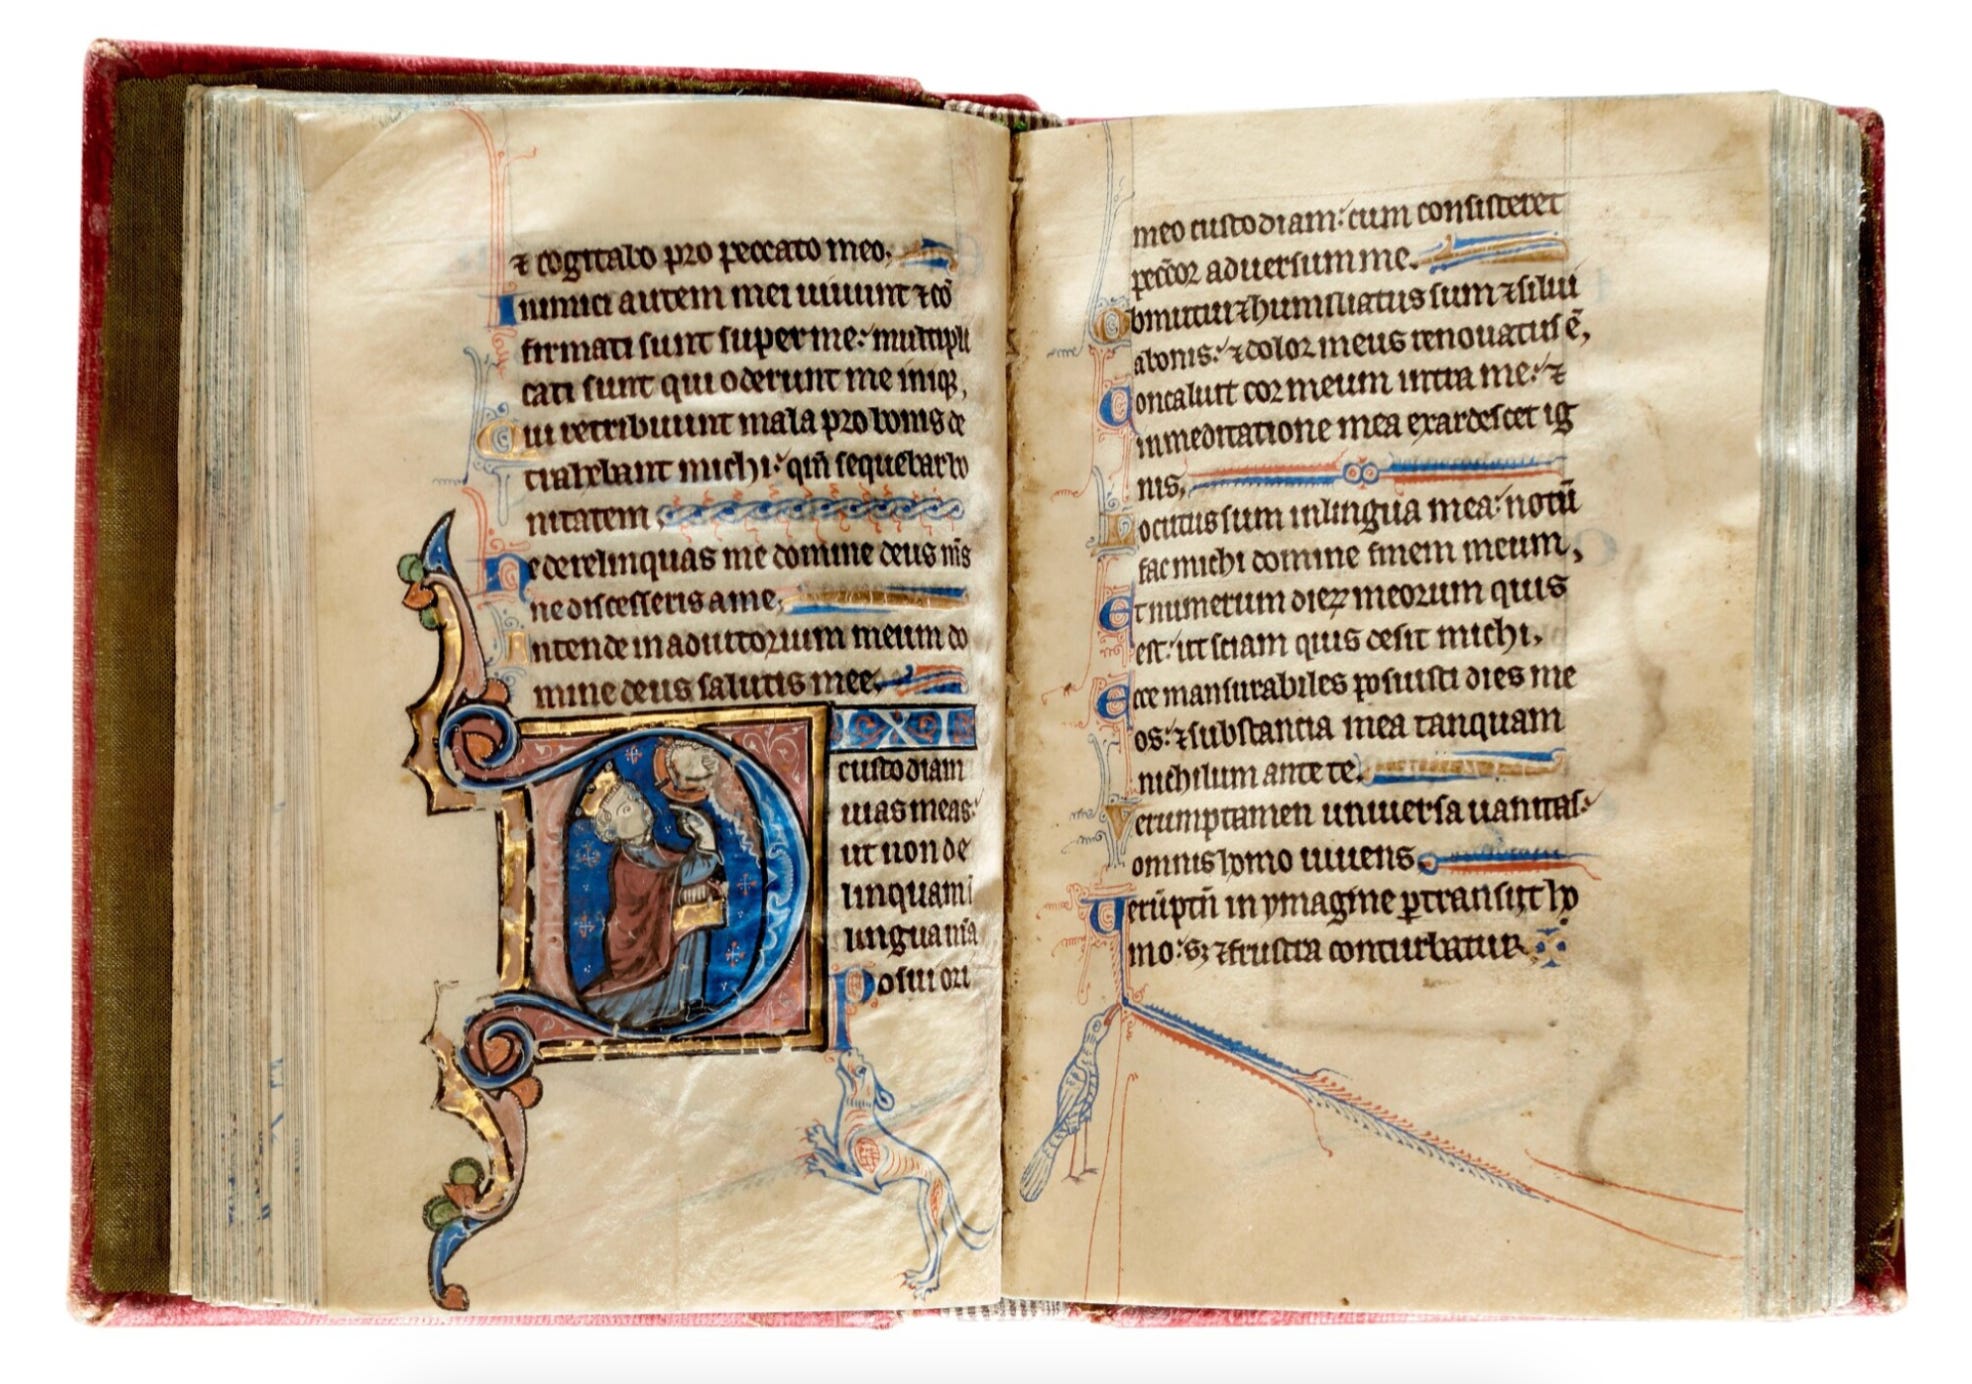 ⁊ cogitabo pro peccato meo.
Inimici autem mei uiuunt ⁊ cō
firmati sunt super me: multipli
cati sunt qui oderunt me iniqꝫ,
Qui retribuunt mala pro bonis de
trahebant michi: qm̄ sequebar bo
nitatem,
Ne derelinquas me domine deus m̅s
ne discesseris a me,
Intende in adiutorium meum do
mine deus salutis mee.
D
custodiam
uias meas:
ut non de
linquam i
lingua m̅a
Posui ori
meo custodiam: cum consisteret
pecc̄or aduersum me.
Obmutui ⁊ humiliatus sum ⁊ silui
a bonis: ⁊ dolor meus renouatus ē,
Concaluit cor meum intra me: ⁊
in meditatione mea exardescet ig
nis,
Locutus sum in lingua mea: notū
fac michi domine finem meum,
Et numerum dieꝝ meorum quis
est: ut sciam quis desit michi,
Ecce mansurabiles posuisti dies me
os: ⁊ substancia mea tanquam
nichilum ante te.
Verumptamen uniuersa uanitas:
omnis homo uiuens.
Verūptn̄ in ymagine ꝑtransiit ho
mo: sꝫ ⁊ frustra conturbatur.